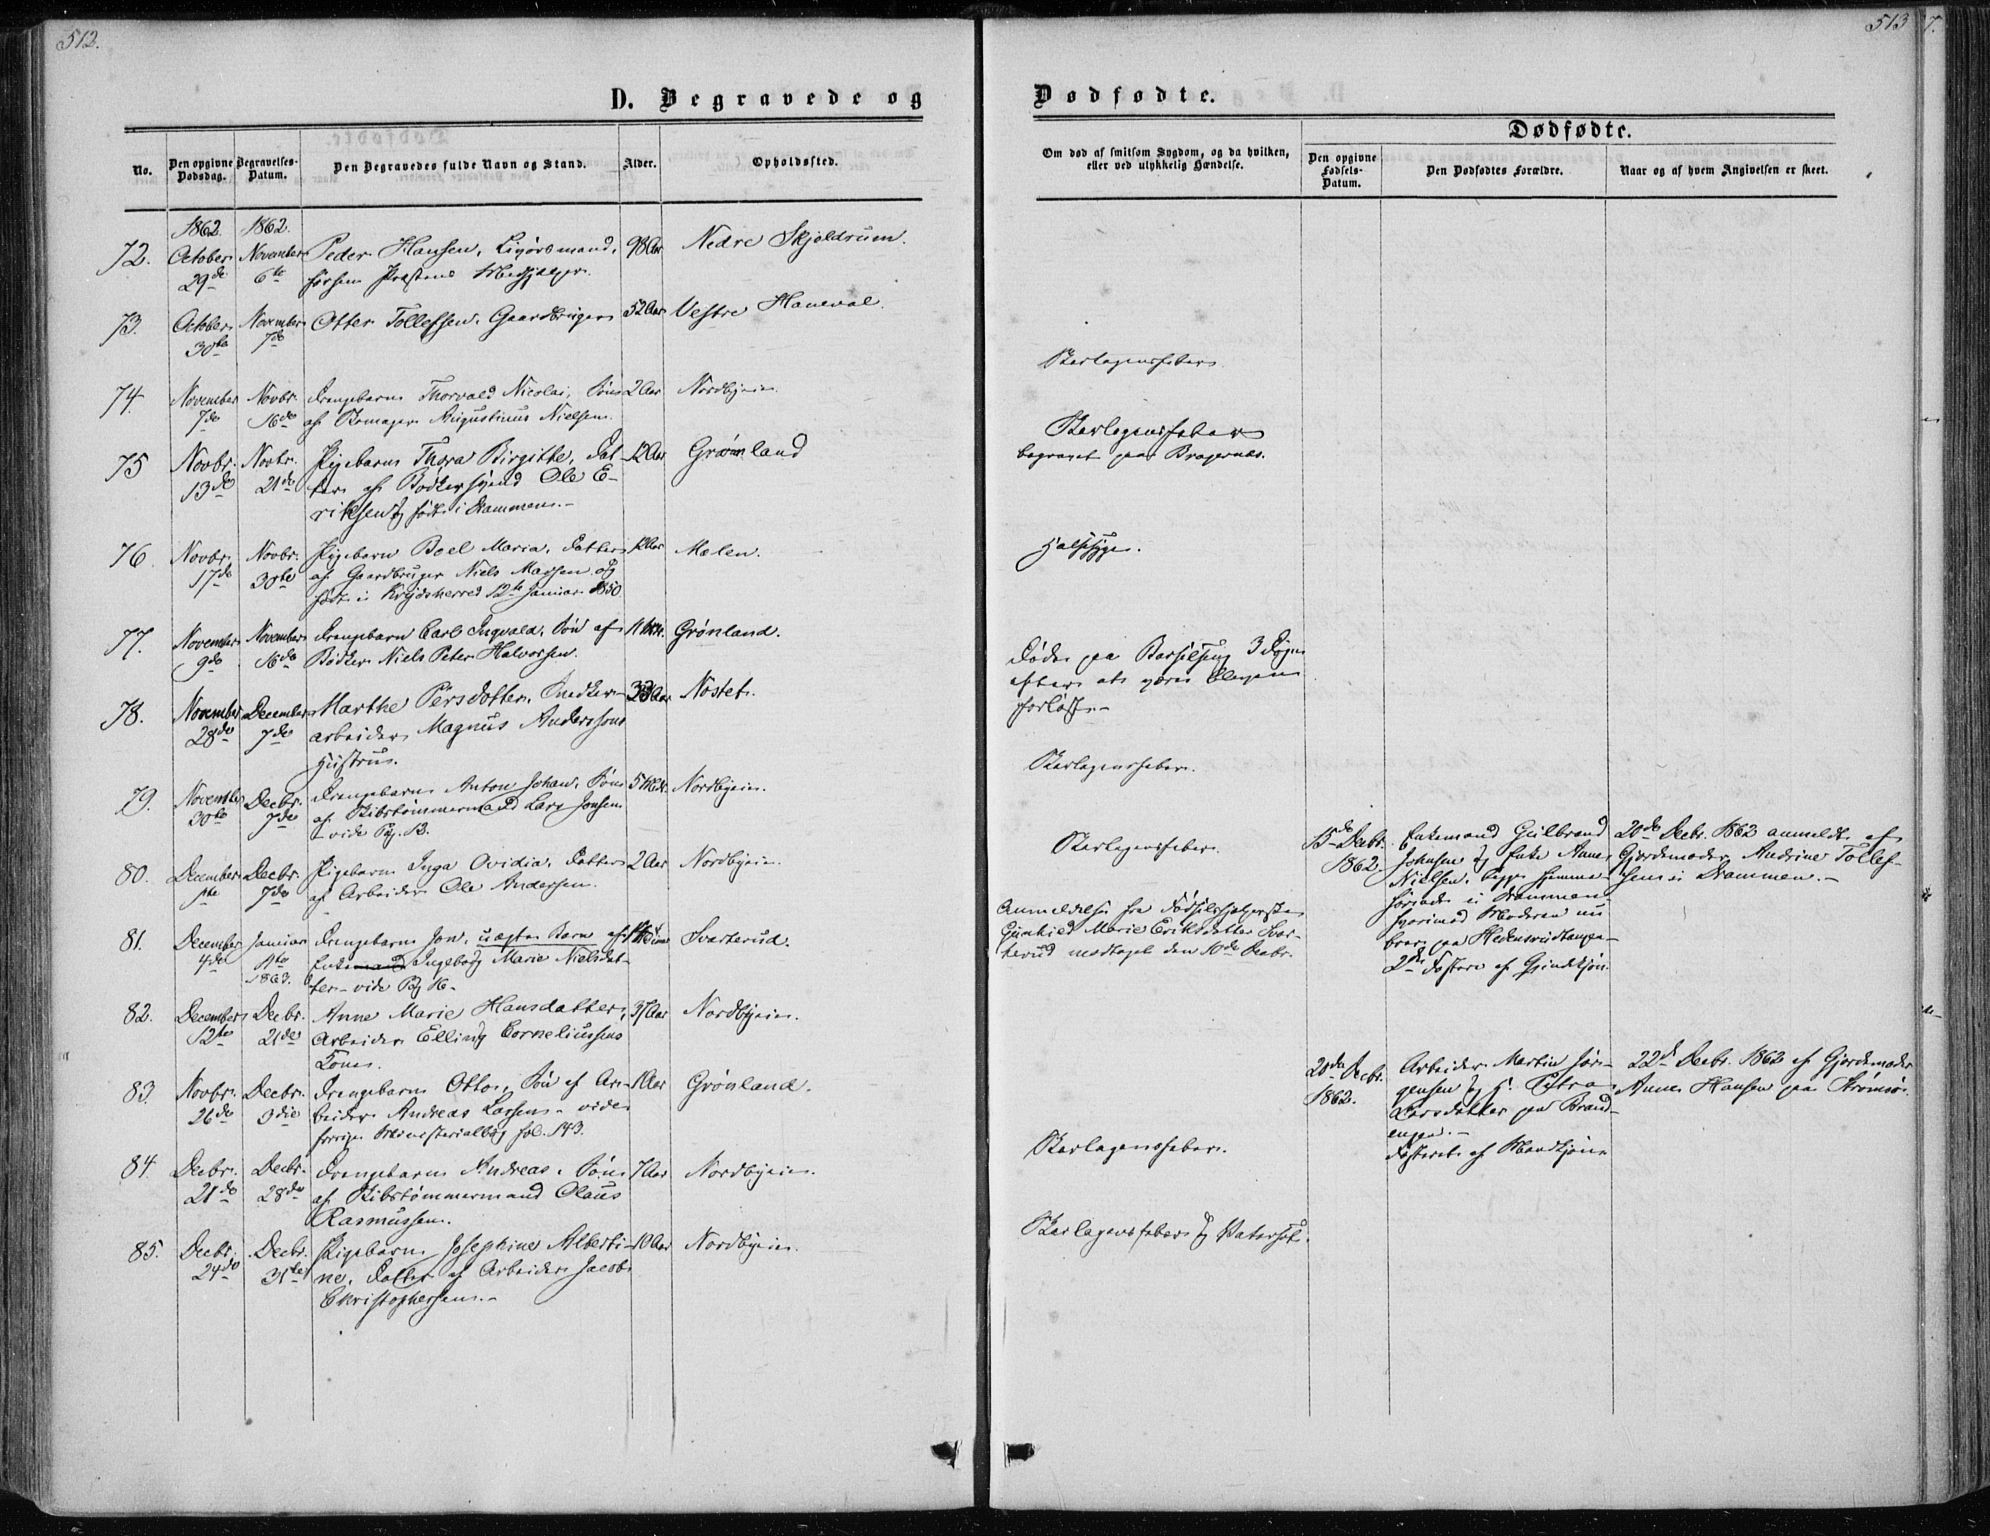 512.
D. Begravede og
No.
Den opgivne Dødsdag.
Begravelses-Datum.
Den Begravedes fulde Navn og Stand.
Alder.
Opholdssted.
1862. 1862.
72. October November Peder Hansen, 98 Aar Nedre Skjoldrum.
29de 6te
73. October November Otter Tollefsen, Gaardbruger 52 Aar Vestre Haneval
30te 7de
74. November Novbr. Drengebarn Thorvald Nicolai, Søn 2 Aar Nordbyeien
7de 16de af Augustinus Nielsen.
75 Novbr. Novbr. Pigebarn Thora Birgitte, Dat- 12 Aar Grønland
13de 21de ter af Bødkersvend Ole E-
riksen født i Drammen.-
76 Novbr. Novbr. Pigebarn Boel Maria, Datter 12 Aar Mælen.
17de 30te af Gaardbruger Niels Madsen og
født i Krydsherred 12te Januar 1850
77. November November Drengebarn Carl Ingvald, Søn af 11 Grønland.
9de 16de Bødker Niels Peter Halvorsen.
78. November December Marthe Persdotter, Snedker- Nøstet.
28de 7de arbeider Magnus Anderssons
Hustru.
79. November Decbr. Drengebarn Anton Johan, Søn 5 Nordbyeien.
30te 7de af Skibstømmermand Lars Jonsen
- vide Pg. 13.
80. December Decbr. Pigebarn Inga Ovidia, Datter 2 Aar Nordbyeien.
1ste 7de af Arbeider Ole Andersen.
81. December Januar Drengebarn Jon, uægte Barn af Svarterud.
4de 11te Enke Ingeborg Marie Nielsdat-
1863. ter - vide Pg 16-
82. December Decbr. Anne Marie Hansdatter, 37 Aar Nordbyeien.
12te 21de Arbeider Elling Corneliussens
Kone.
83. Novbr. Decbr. Drengebarn Otto, Søn af Ar- 1 Aar Grønland.
26de beider Andreas Larsen - vide
forrige Ministerialbog fol. 143.
84 Decbr. Decbr. Drengebarn Andreas, Søn 7 Aar Nordbyeien.
21de 28de af Skibstømmermand Olaus
Rasmussen.
85. Decbr. Decbr. Pigebarn Josephine Alberti- 10 Aar Nordbyeien.
24de 31te ne, Datter af Arbeider Jacob
Christophersen.-
513
7.
Dødfødte.
Om død af smitsom Sygdom, og da hvilken, eller ved ulykkelig Hændelse.
Dødfødte.
Den opgivne Fødsels-Datum.
Den Dødfødtes Forældre.
Naar og af hvem Angivelsen er skeet.
Skarlagensfeber
Skarlagensfeber
begravet paa Bragernes.
Halssyge.
Døde paa Barselseng 3
efter at være
forløst.-
Skarlagensfeber.
Skarlagensfeber.
15de Decbr. Enkemand Gulbrand 20de Decbr. 1862 anmeldt af
1862. Johnsen og Enke Anne Gjordemoder Andrine Tollef-
Nielsen, sen i Drammen.-
i Drammen
hvorimod Moderen nu
boer paa
2de Fostere af Qvindekjøn
Anmeldelse fra Fødselshjælperske
Gunhild Marie Eriksdatter Svar-
terud modtaget den 10de Decbr.
Decbr. Arbeider Martin Jør- 22de Decbr. 1862 af Gjordemoder
1862. gensen og H. Petra Anne Hansen paa Strømsø.
Larsdatter paa Brand-
engen.-
Fosteret af Mandkjøn
Skarlagensfeber.
Skarlagensfeber og Vatersot.